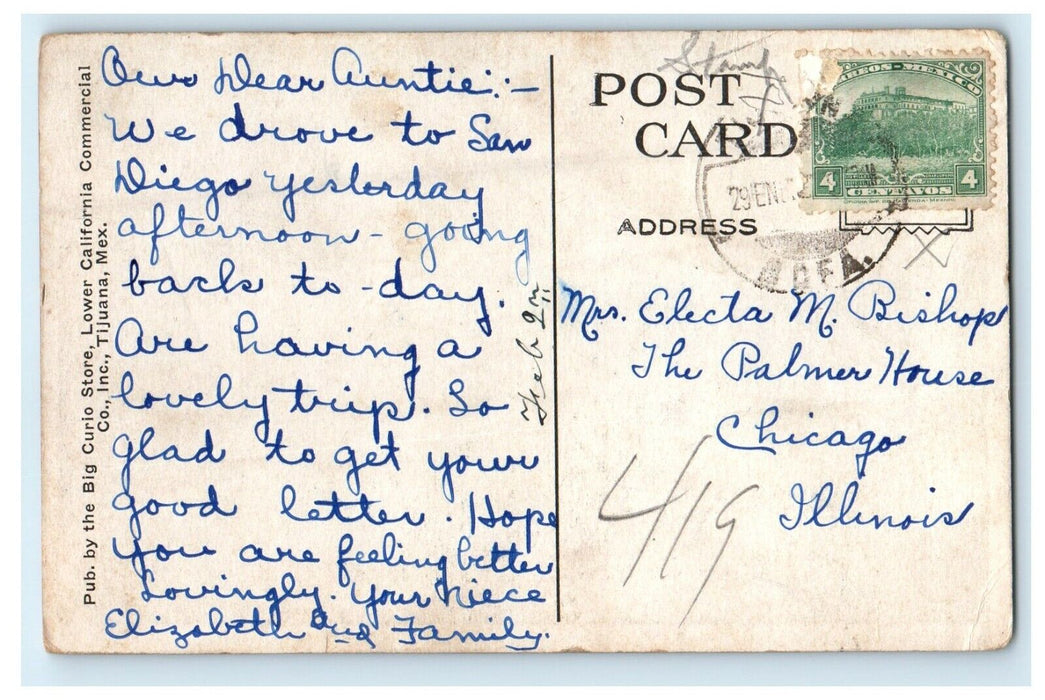 Pub. by the Big Curio Store, Lower California Commercial
Co., Inc., Tijuana, Mex.
Our Dear Auntie:-
We drove to San
Diego yesterday
afternoon - going
back to-day.
Are having a
lovely trip. So
glad to get your
good letter. Hope
you are feeling better
Lovingly. Your Niece
Elizabeth and Family.
Feb 2
POST
CARD
ADDRESS
Stamp
CORREOS-MEXICO
4 4
CENTAVOS
29 EN
B. CFA.
Mrs. Electa M. Bishop
The Palmer House
Chicago
Illinois
419